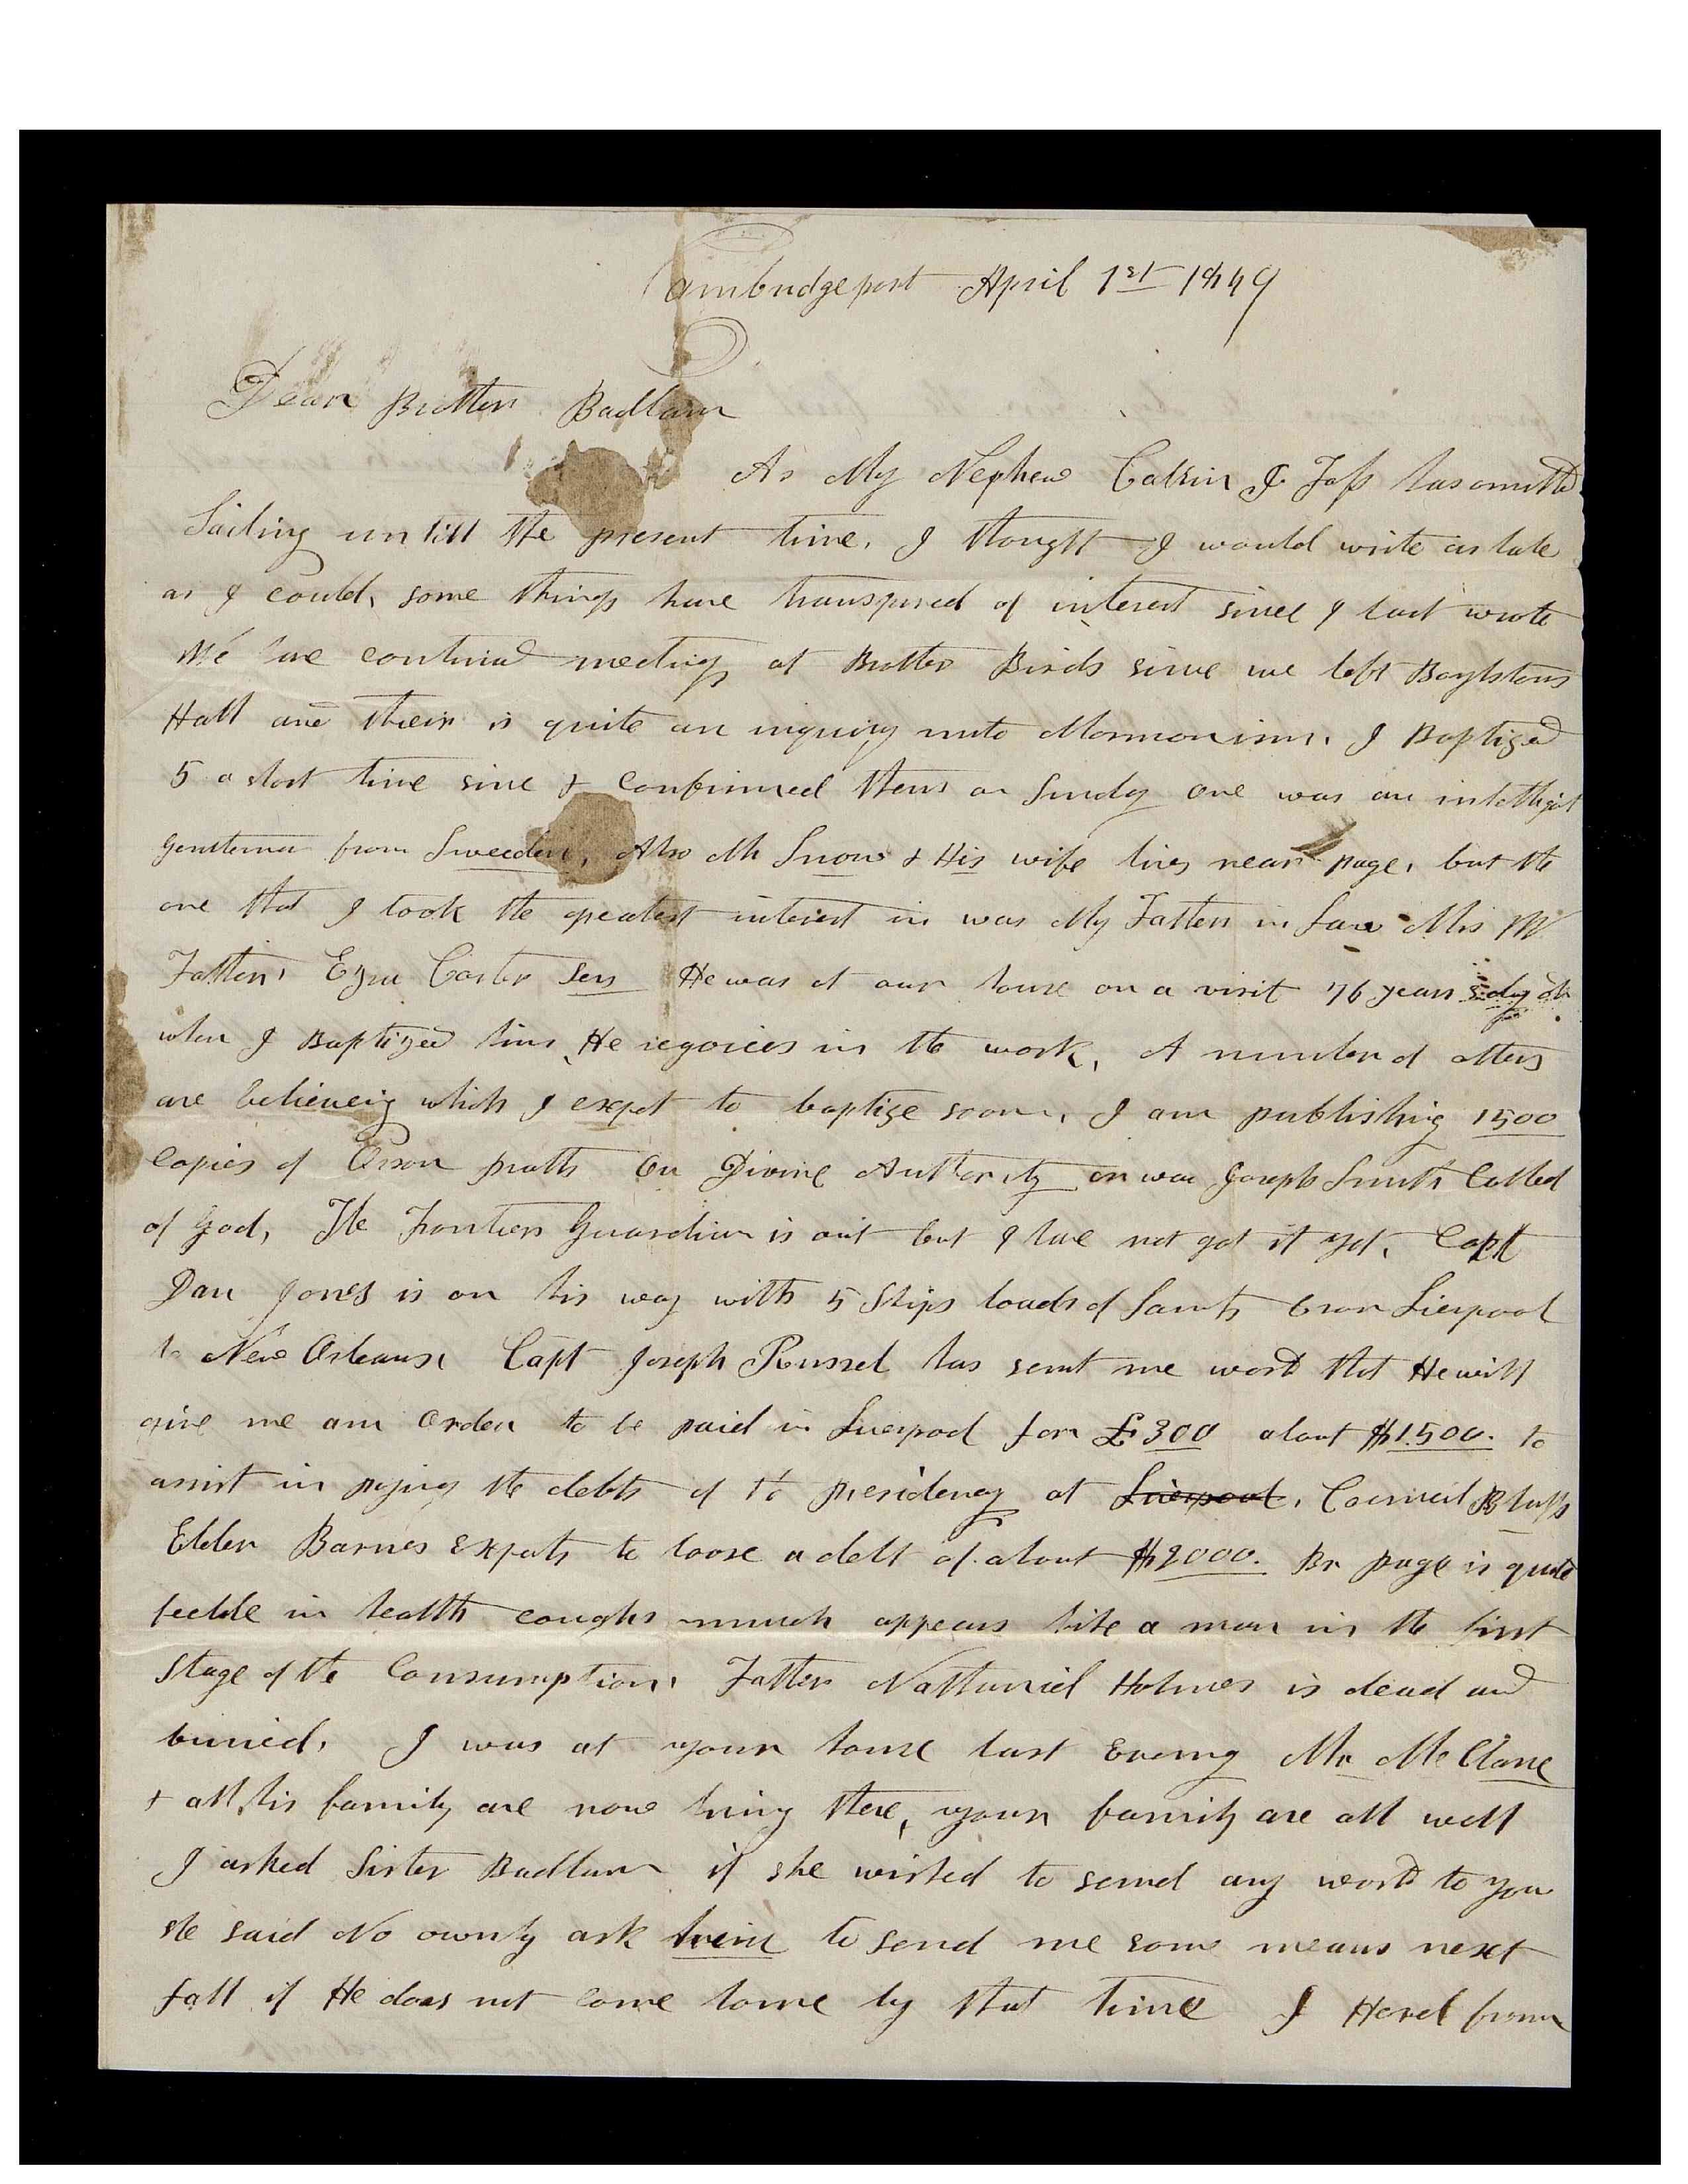 Cambridgeport April 1st 1849
Dear Brother Badlam
As My Nephew Calvin J Foss has omitted
Sailing untill the present time. I thought I would write as late
as I could, some things have transpired of interest since I last wrote
We have continued meetings at Brother Birds since we left Boylstons
Hall and their is quite an inquiry unto Mormonism. I Baptized
5 a short time since & confirmed them on Sunday one was an intelligent
gentleman from Sweeden, Also Mr Snow & His wife lives near page, but the
one that I took the greatest interest in was My Father in Law Mrs W
Father, Ezra Carter Sen He was at our house on a visit 76 years old
when I Baptized him, He rejoices in the work, A number of others
are believeing which I expect to baptize soon, I am publishing 1500
copies of Orson pratts on Divine Authority or was Joseph Smith Called
of God, The Frontier Guardian is out but I have not got it yet, Capt
Dan Jones is on his way with 5 Ships loads of Saints from Lierpool
to New Orleans, Capt Joseph Russel has sent me word that He will
give me an Order to be paid in Liverpool for £300 about $1500. to
assist in paying the debts of the presidency at Liverpool, Council Bluffs
Elder Barnes Expects to loose a debt of about $2000. Br page is quite
feeble in health coughs much appears like a man in the first
Stage of the Consumption, Father Nathaniel Holmes is dead and
buried, I was at your house last Evening Mr McClane
& all his family are now living there, your family are all well
I asked Sister Badlam if she wished to send any word to you
she said No ownly ask him to send me some means next
fall if He does not come home by that time I Herd from